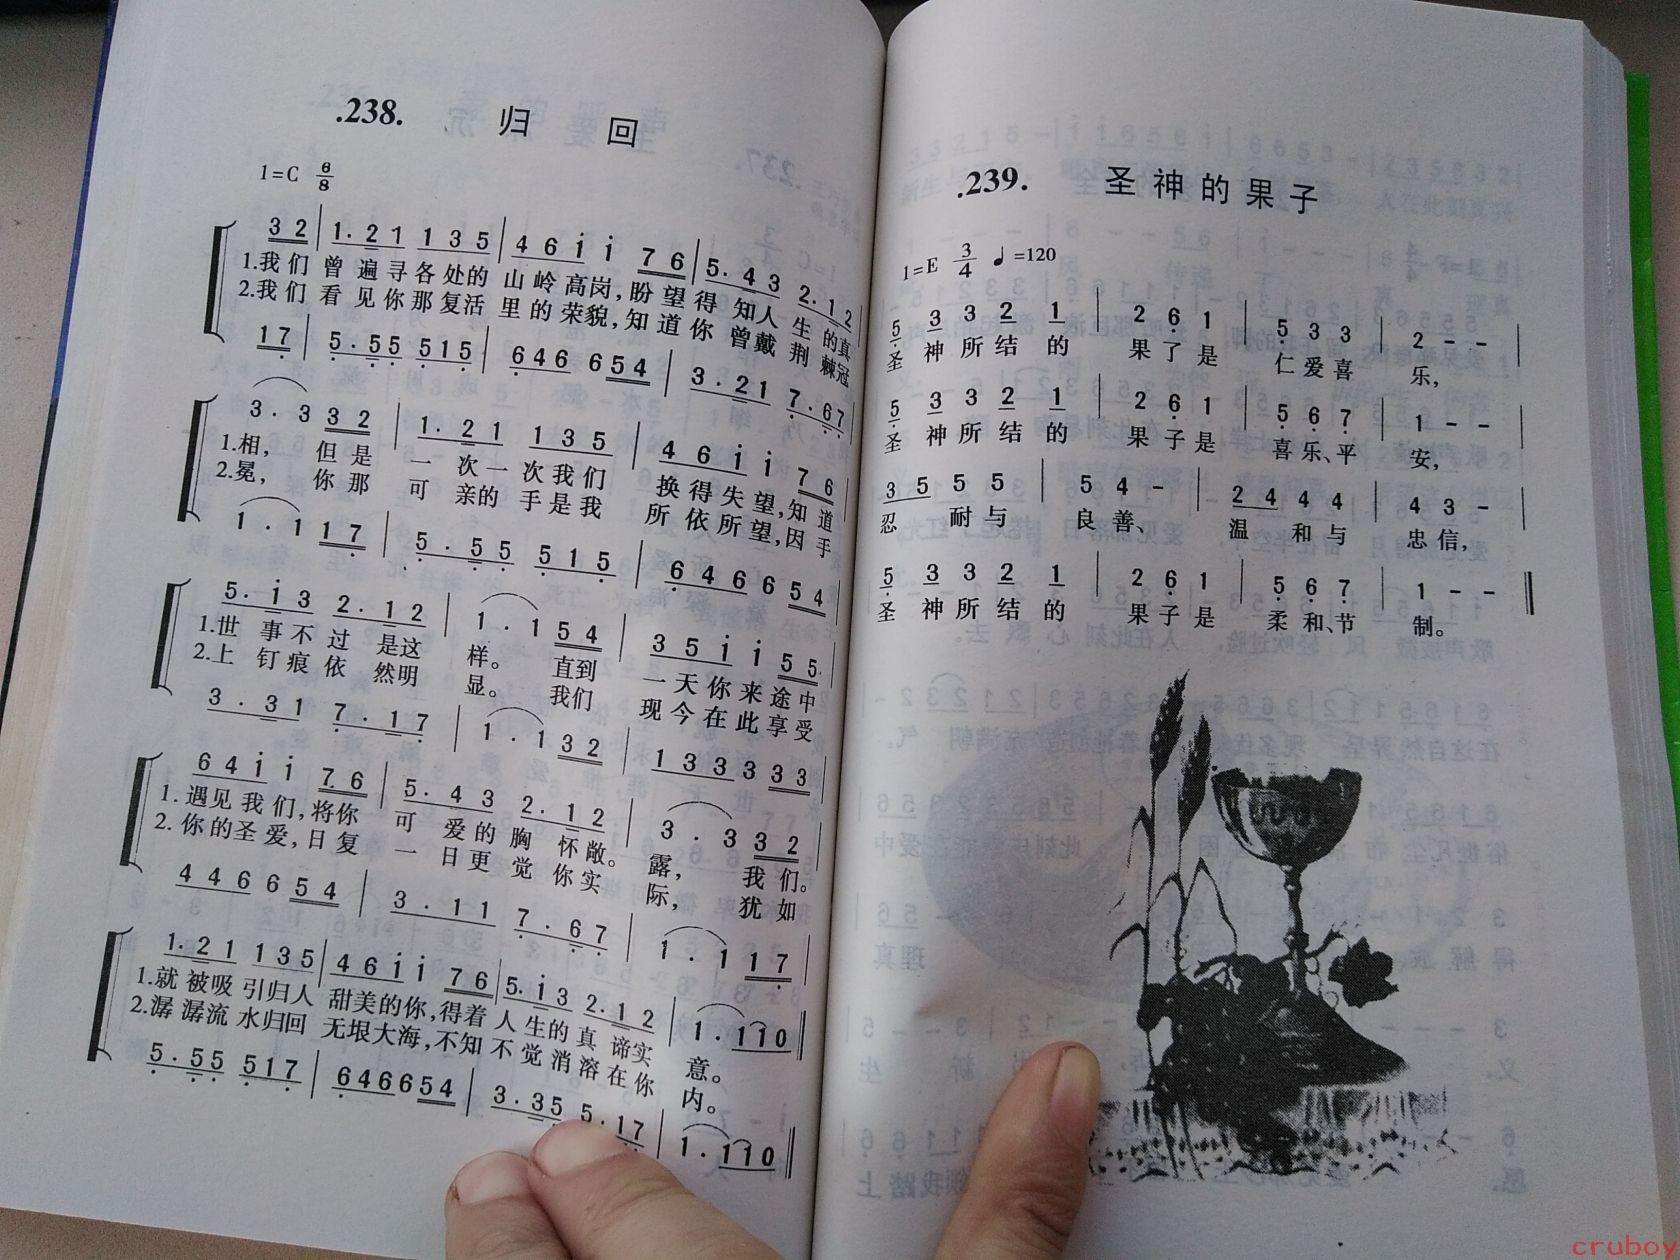 .238. 归 回
1=C 6/8
3 2 | 1. 2 1 1 3 5 | 4 6 i i 7 6 | 5. 4 3 2. 1 2
1.我们 曾 遍 寻各处的 山 岭 高岗，盼 望 得 知人 生 的真
2.我们 看 见你那复活 里 的 荣貌，知 道 你 曾戴 荆 棘冠
1 7 | 5. 5 5 5 1 5 | 6 4 6 6 5 4 | 3. 2 1 7. 6 7
3. 3 3 2 | 1. 2 1 1 3 5 | 4 6 i i 7 6
1.相， 但 是 一 次一 次我们 换 得失 望，知 道
2.冕， 你 那 可 亲的 手是我 所 依所 望，因 手
1. 1 1 7 | 5. 5 5 5 1 5 | 6 4 6 6 5 4
5. i 3 2. 1 2 | 1. 1 5 4 | 3 5 i i 5 5
1.世 事不 过 是这 样。 直到 一天你 来途中
2.上 钉痕依 然明 显。 我们 现今在此享受
3. 3 1 7. 1 7 | 1. 1 3 2 | 1 3 3 3 3 3
6 4 i i 7 6 | 5. 4 3 2. 1 2 | 3. 3 3 2
1.遇见我们，将你 可 爱的胸 怀敞。露， 我们。
2.你的圣爱，日复 一 日更觉 你实 际， 犹如
4 4 6 6 5 4 | 3. 1 1 7. 6 7 | 1. 1 1 7
1. 2 1 1 3 5 | 4 6 i i 7 6 | 5. i 3 2. 1 2 | 1. 1 1 0
1.就被吸引归人 甜美的你，得着人生的真谛实 意。
2.潺潺流水归回 无垠大海，不知不觉消溶在你 内。
5. 5 5 5 1 7 | 6 4 6 6 5 4 | 3. 3 5 5. 1 7 | 1. 1 1 0
.239. 圣神的果子
1=E 3/4 ♩=120
5 3 3 2 1 | 2 6 1 | 5 3 3 | 2 - - |
圣 神所结的 果了是 仁爱喜 乐，
5 3 3 2 1 | 2 6 1 | 5 6 7 | 1 - - |
圣 神所结的 果子是 喜乐、平 安，
3 5 5 5 | 5 4 - | 2 4 4 4 | 4 3 - |
忍 耐与 良善、 温 和与 忠信，
5 3 3 2 1 | 2 6 1 | 5 6 7 | 1 - - ‖
圣 神所结的 果子是 柔和、节 制。
cruboy